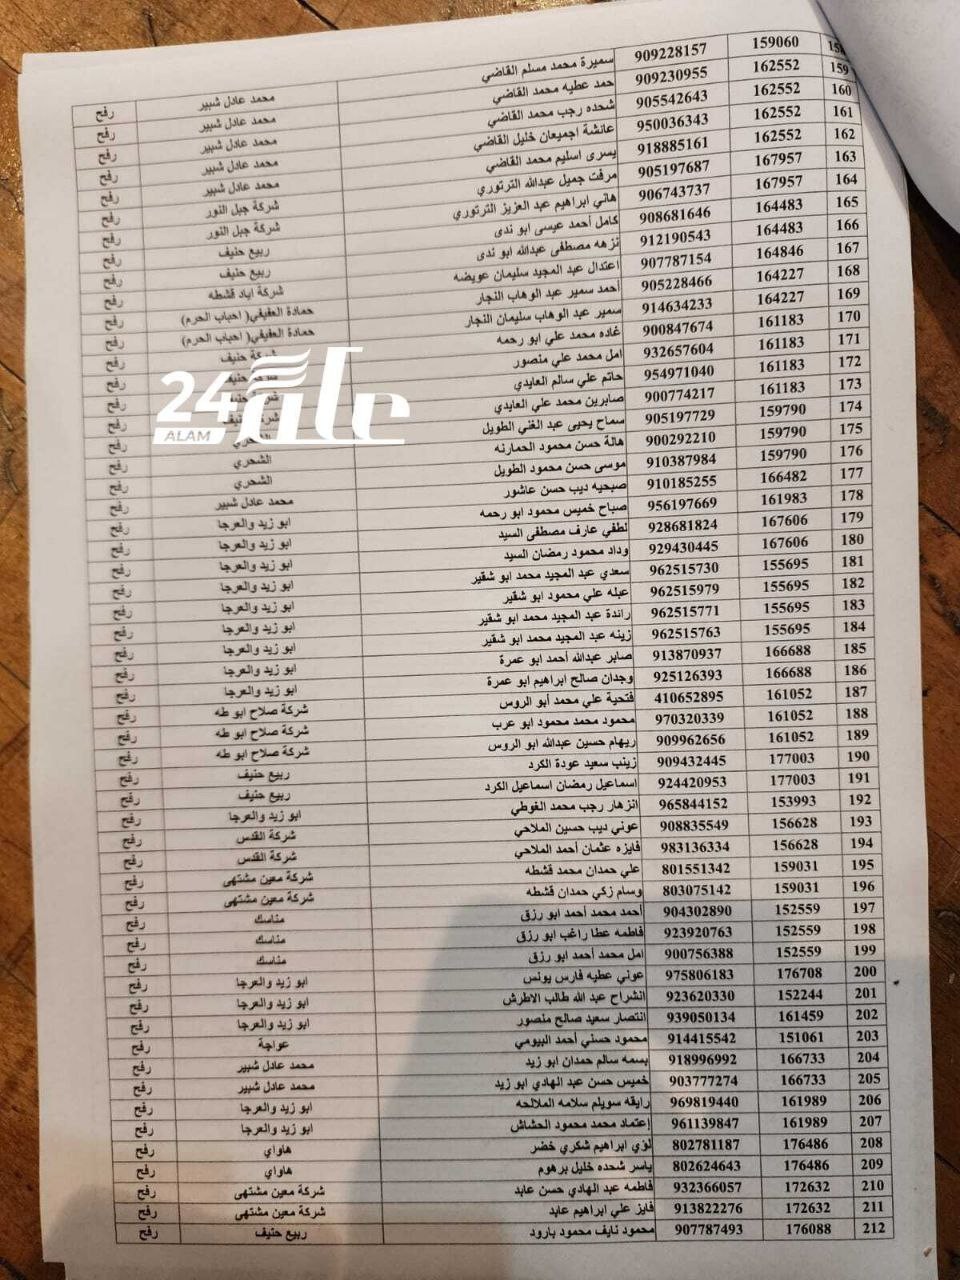 158 159060 909228157 سميرة محمد مسلم القاضي محمد عادل شبير رفح
159 162552 909230955 حمد عطيه محمد القاضي محمد عادل شبير رفح
160 162552 905542643 شحده رجب محمد القاضي محمد عادل شبير رفح
161 162552 950036343 عائشة اجميعان خليل القاضي محمد عادل شبير رفح
162 162552 918885161 يسرى اسليم محمد القاضي محمد عادل شبير رفح
163 167957 905197687 مرفت جميل عبدالله الترتوري شركة جبل النور رفح
164 167957 906743737 هاني ابراهيم عبد العزيز الترتوري شركة جبل النور رفح
165 164483 908681646 كامل أحمد عيسى ابو ندى ربيع حنيف رفح
166 164483 912190543 نزهه مصطفى عبدالله ابو ندى ربيع حنيف رفح
167 164846 907787154 اعتدال عبد المجيد سليمان عويضه شركة اياد قشطه رفح
168 164227 905228466 أحمد سمير عبد الوهاب النجار حمادة العفيفي( احباب الحرم) رفح
169 164227 914634233 سمير عبد الوهاب سليمان النجار حمادة العفيفي( احباب الحرم) رفح
170 161183 900847674 غاده محمد علي ابو رحمه شركة حنيف رفح
171 161183 932657604 امل محمد علي منصور
172 161183 954971040 حاتم علي سالم العايدي
173 161183 900774217 صابرين محمد علي العايدي
174 159790 905197729 سماح يحيى عبد الغني الطويل الشحري رفح
175 159790 900292210 هالة حسن محمود الحمارنه الشحري رفح
176 159790 910387984 موسى حسن محمود الطويل الشحري رفح
177 166482 910185255 صبحيه ديب حسن عاشور محمد عادل شبير رفح
178 161983 956197669 صباح خميس محمود ابو رحمه ابو زيد والعرجا رفح
179 167606 928681824 لطفي عارف مصطفى السيد ابو زيد والعرجا رفح
180 167606 929430445 وداد محمود رمضان السيد ابو زيد والعرجا رفح
181 155695 962515730 سعدي عبد المجيد محمد ابو شقير ابو زيد والعرجا رفح
182 155695 962515979 عبله علي محمود ابو شقير ابو زيد والعرجا رفح
183 155695 962515771 رائدة عبد المجيد محمد ابو شقير ابو زيد والعرجا رفح
184 155695 962515763 زينه عبد المجيد محمد ابو شقير ابو زيد والعرجا رفح
185 166688 913870937 صابر عبدالله أحمد ابو عمرة ابو زيد والعرجا رفح
186 166688 925126393 وجدان صالح ابراهيم ابو عمرة ابو زيد والعرجا رفح
187 161052 410652895 فتحية علي محمد أبو الروس شركة صلاح ابو طه رفح
188 161052 970320339 محمود محمد محمود ابو عرب شركة صلاح ابو طه رفح
189 161052 909962656 ريهام حسين عبدالله ابو الروس شركة صلاح ابو طه رفح
190 177003 909432445 زينب سعيد عودة الكرد ربيع حنيف رفح
191 177003 924420953 اسماعيل رمضان اسماعيل الكرد ربيع حنيف رفح
192 153993 965844152 انزهار رجب محمد الغوطي ابو زيد والعرجا رفح
193 156628 908835549 عوني ديب حسين الملاحي شركة القدس رفح
194 156628 983136334 فايزه عثمان أحمد الملاحي شركة القدس رفح
195 159031 801551342 علي حمدان محمد قشطه شركة معين مشتهى رفح
196 159031 803075142 وسام زكي حمدان قشطه شركة معين مشتهى رفح
197 152559 904302890 أحمد محمد أحمد ابو رزق مناسك رفح
198 152559 923920763 فاطمه عطا راغب ابو رزق مناسك رفح
199 152559 900756388 امل محمد أحمد ابو رزق مناسك رفح
200 176708 975806183 عوني عطيه فارس يونس ابو زيد والعرجا رفح
201 152244 923620330 انشراح عبد الله طالب الاطرش ابو زيد والعرجا رفح
202 161459 939050134 انتصار سعيد صالح منصور ابو زيد والعرجا رفح
203 151061 914415542 محمود حسني أحمد البيومي عواجة رفح
204 166733 918996992 بسمه سالم حمدان ابو زيد محمد عادل شبير رفح
205 166733 903777274 خميس حسن عبد الهادي ابو زيد محمد عادل شبير رفح
206 161989 969819440 رايقه سويلم سلامه الملالحه ابو زيد والعرجا رفح
207 161989 961139847 إعتماد محمد محمود الحشاش ابو زيد والعرجا رفح
208 176486 802781187 لؤي ابراهيم شكري خضر هاواي رفح
209 176486 802624643 ياسر شحده خليل برهوم هاواي رفح
210 172632 932366057 فاطمه عبد الهادي حسن عابد شركة معين مشتهى رفح
211 172632 913822276 فايز علي ابراهيم عابد شركة معين مشتهى رفح
212 176088 907787493 محمود نايف محمود بارود ربيع حنيف رفح
24
ALAM